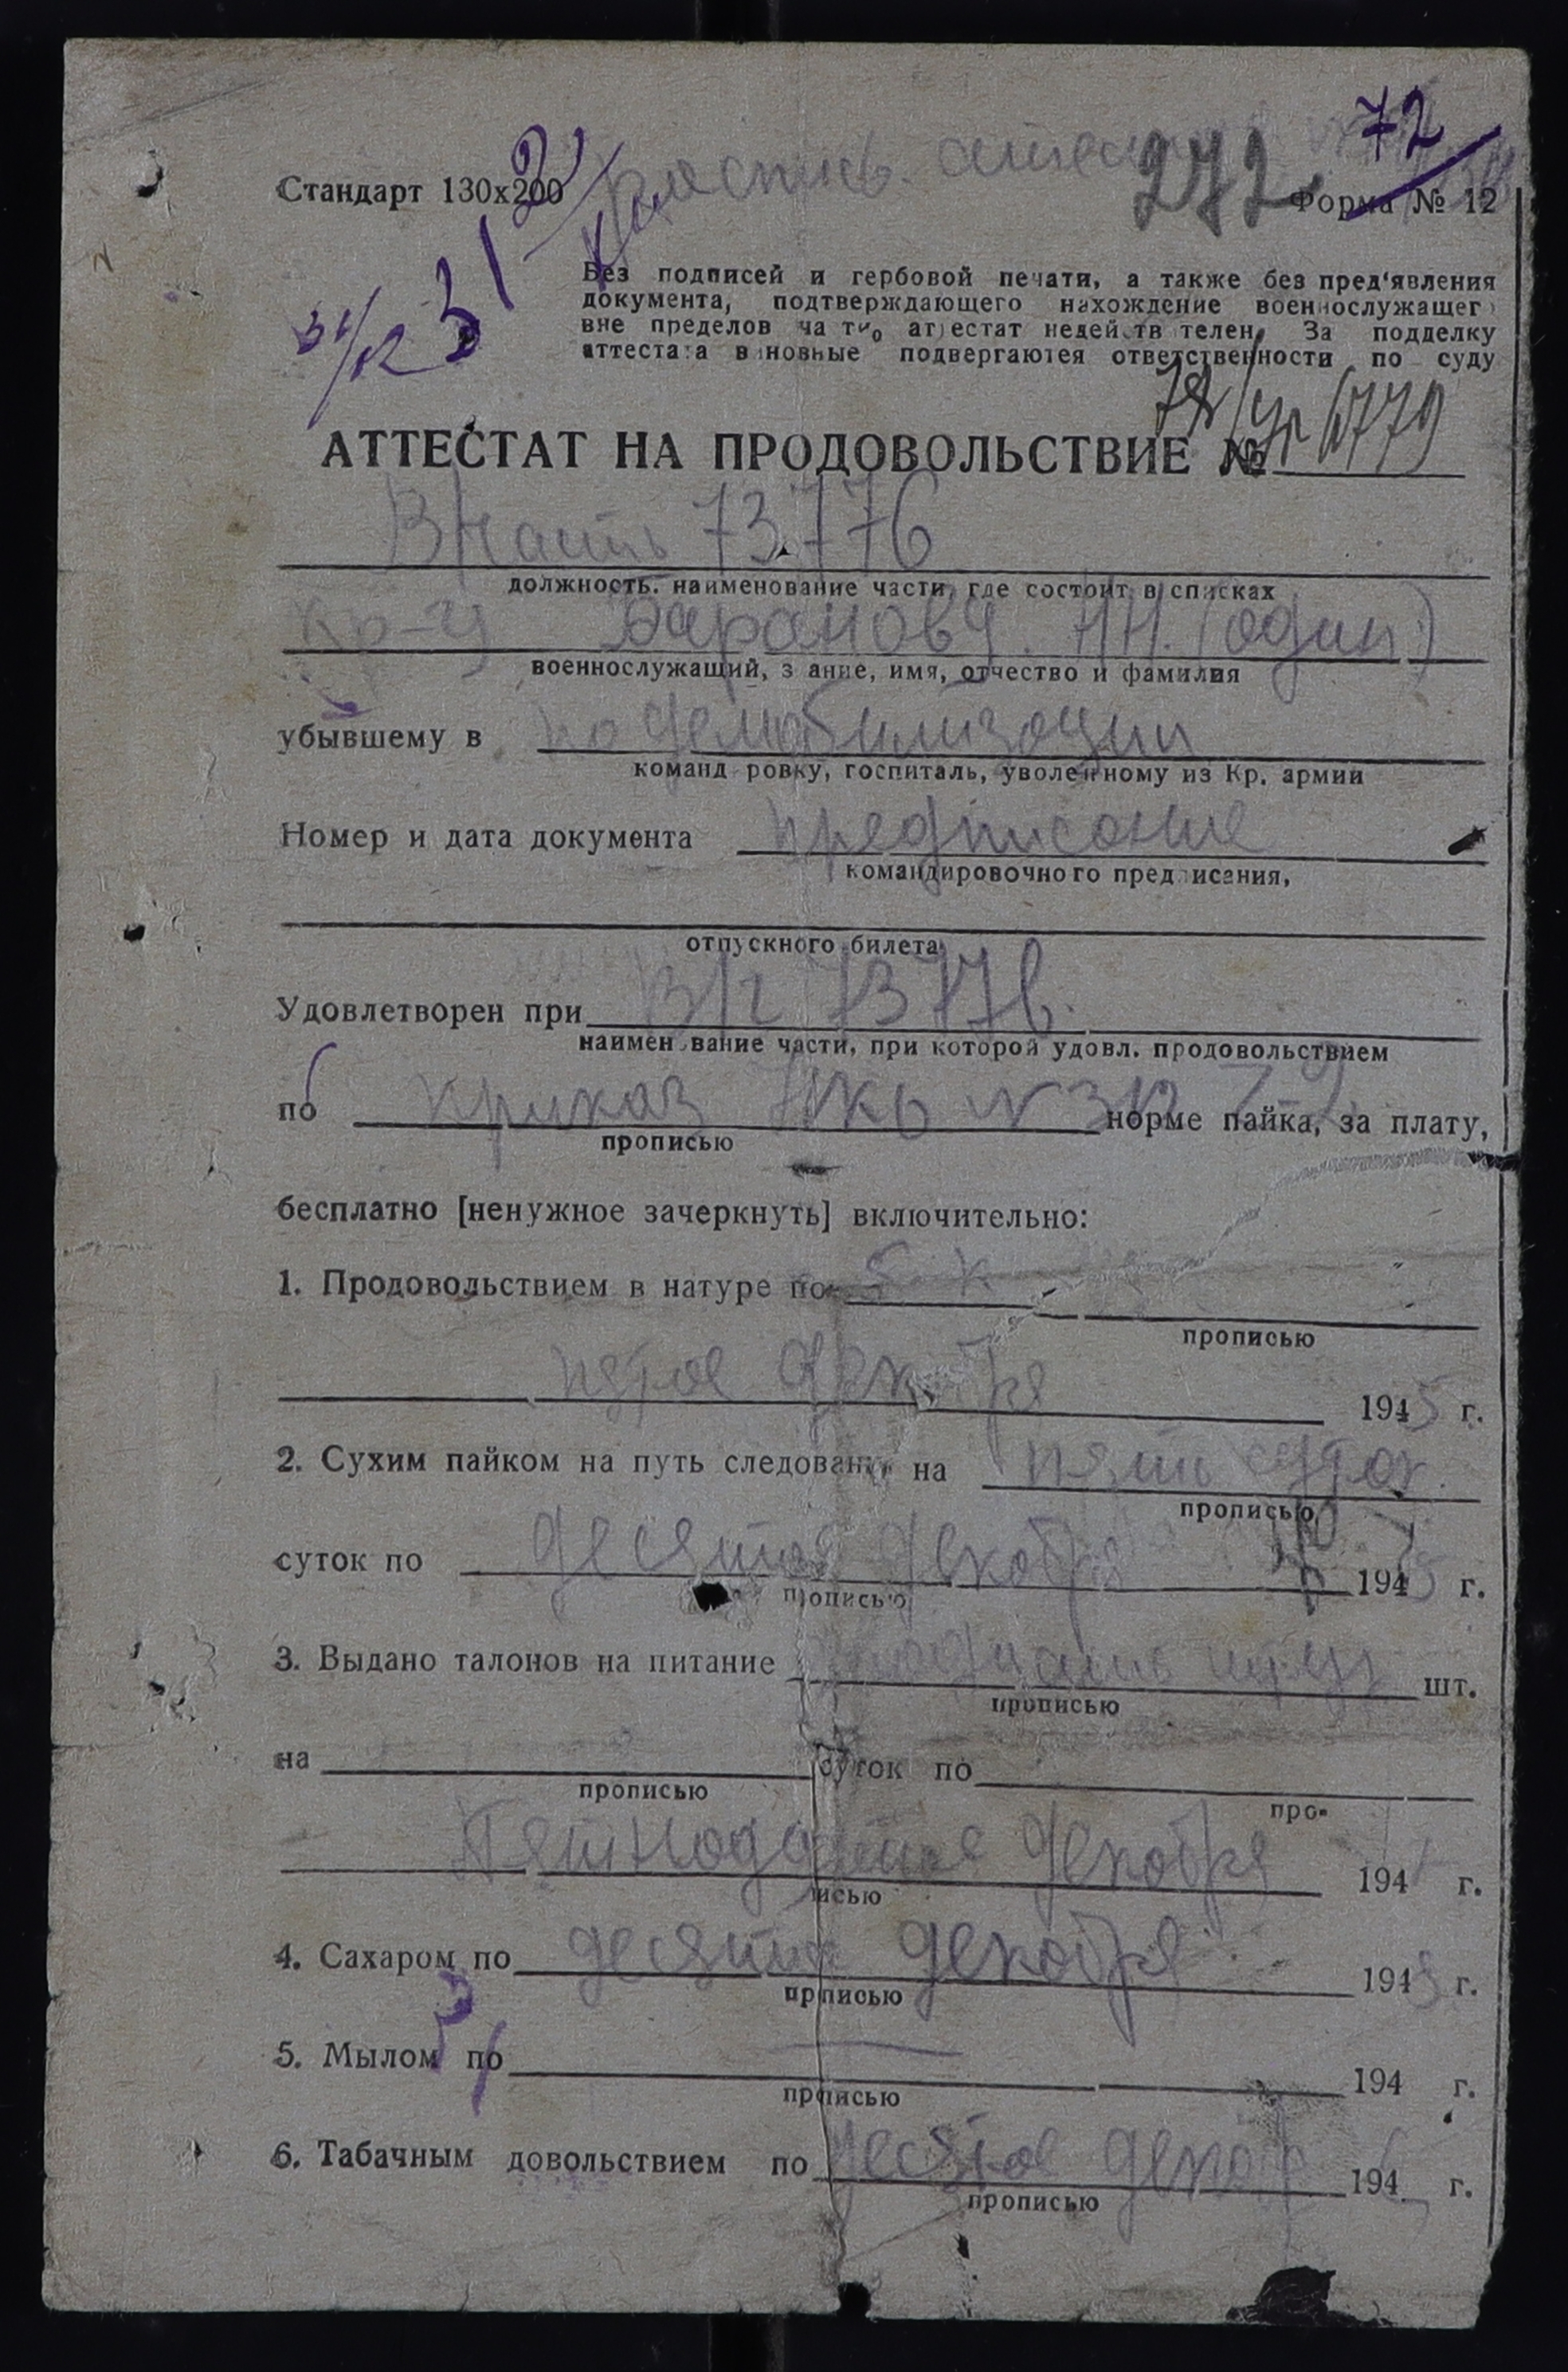 72
Стандарт 130х200
272
Форма № 12
Без подписей и гербовой печати, а также без пред'явления
документа, подтверждающего нахождение военнослужащег
вне пределов ча ти, аттестат недейств телен. За подделку
аттестата виновные подвергаются ответственности по суду
АТТЕСТАТ НА ПРОДОВОЛЬСТВИЕ №
В/часть 73776
должность. наименование части, где состоит в списках
кр-цу Баранову Н.Н. (один)
военнослужащий, з ание, имя, отчество и фамилия
убывшему в по демобилизации
команд ровку, госпиталь, уволенному из Кр. армии
Номер и дата документа предписание
командировочного пред исания,
отпускного билета
Удовлетворен при в/ч 73776.
наимен вание части, при которой удовл. продовольствием
по приказ НКО № 312 норме пайка, за плату,
прописью
бесплатно [ненужное зачеркнуть] включительно:
1. Продовольствием в натуре по
прописью
пятое декабря 1945 г.
2. Сухим пайком на путь следования на пять суток.
прописью
суток по десятое декабря 1945 г.
прописью
3. Выдано талонов на питание шт.
прописью
на суток по
прописью
про-
Пятнадцатое декабря 194 г.
исью
4. Сахаром по десятое декабря 1945 г.
прписью
5. Мылом по — 194 г.
прписью
6. Табачным довольствием по десятое декаб 194 г.
прописью